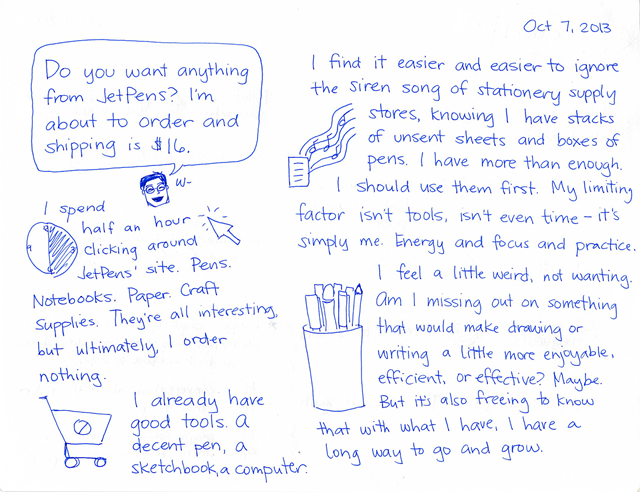 Oct 7, 2013
Do you want anything
from JetPens? I'm
about to order and
shipping is $16.
W-
I spend
half an hour
clicking around
JetPens' site. Pens.
Notebooks. Paper. Craft
Supplies. They're all interesting,
but ultimately, I order
nothing.
I already have
good tools. A
decent pen, a
sketchbook, a computer.
I find it easier and easier to ignore
the siren song of stationery supply
stores, knowing I have stacks
of unsent sheets and boxes of
pens. I have more than enough.
I should use them first. My limiting
factor isn't tools, isn't even time – it's
simply me. Energy and focus and practice.
I feel a little weird, not wanting.
Am I missing out on something
that would make drawing or
writing a little more enjoyable,
efficient, or effective? Maybe.
But it's also freeing to know
that with what I have, I have a
long way to go and grow.